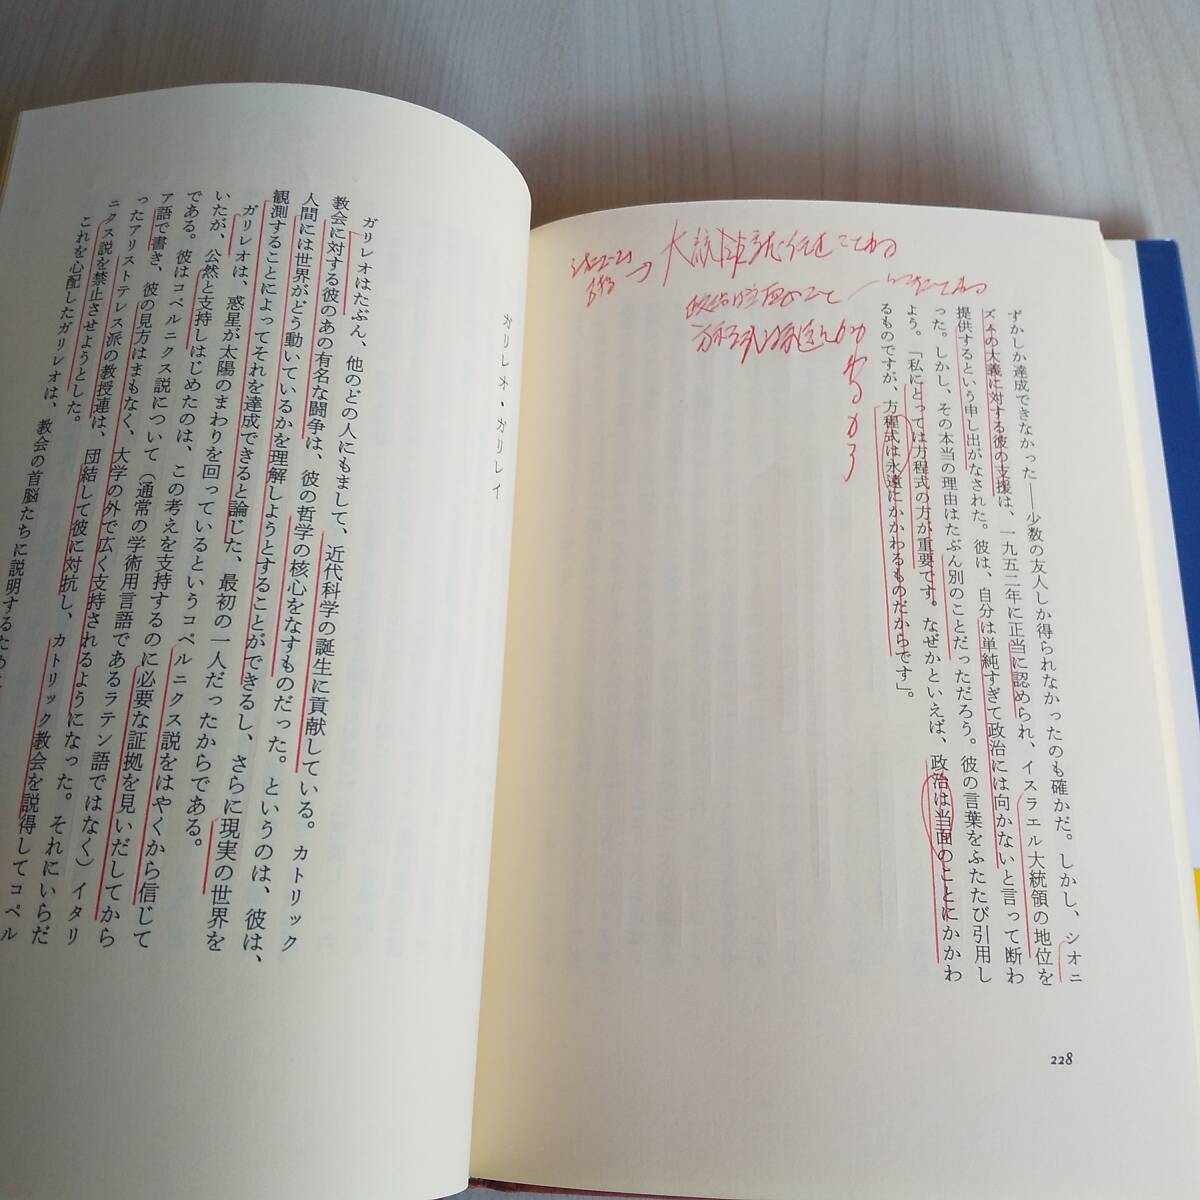 ずかしか達成できなかった——少数の友人しか得られなかったのも確かだ。しかし、シオニ
ズムの大義に対する彼の支援は、一九五二年に正当に認められ、イスラエル大統領の地位を
提供するという申し出がなされた。彼は、自分は単純すぎて政治には向かないと言って断わ
った。しかし、その本当の理由はたぶん別のことだっただろう。彼の言葉をふたたび引用し
よう。「私にとっては方程式の方が重要です。なぜかといえば、政治は当面のことにかかわ
るものですが、方程式は永遠にかかわるものだからです」。
228
ガリレオ・ガリレイ
ガリレオはたぶん、他のどの人にもまして、近代科学の誕生に貢献している。カトリック
教会に対する彼のあの有名な闘争は、彼の哲学の核心をなすものだった。というのは、彼は、
人間には世界がどう動いているかを理解しようとすることができるし、さらに現実の世界を
観測することによってそれを達成できると論じた、最初の一人だったからである。
ガリレオは、惑星が太陽のまわりを回っているというコペルニクス説をはやくから信じて
いたが、公然と支持しはじめたのは、この考えを支持するのに必要な証拠を見いだしてから
である。彼はコペルニクス説について（通常の学術用言語であるラテン語ではなく）イタリ
ア語で書き、彼の見方はまもなく、大学の外で広く支持されるようになった。それにいらだ
ったアリストテレス派の教授連は、団結して彼に対抗し、カトリック教会を説得してコペル
ニクス説を禁止させようとした。
これを心配したガリレオは、教会の首脳たちに説明するために